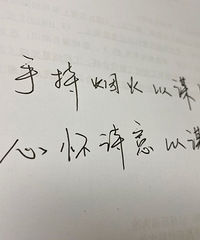 手持烟火以谋
心怀诗意以谋